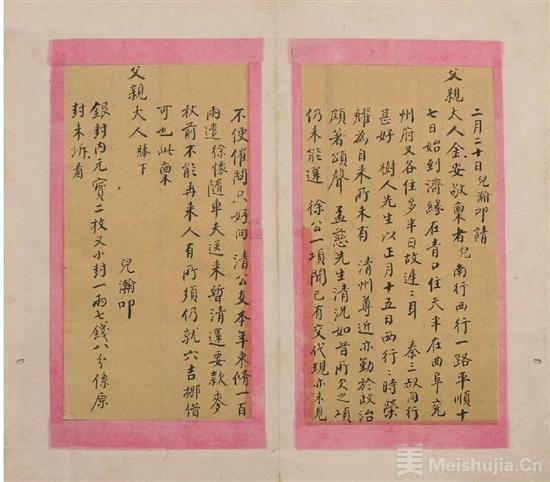 二月二十日兒瀚叩請
父親大人金安敬稟者兒南行西行一路平順十
七日始到濟緣在青口住天半在曲阜兗
州府又各住多半日故遲遲耳 秦三叔同行
甚好 樹人先生以正月十五日西行行時榮
耀為自來所未有 清州尊近亦勤於政治
頗著頌聲 孟慈先生清況如昔所欠之項
仍未能還 徐公一項聞已有交代現亦未見
不便催問只好向 清公支本年束脩一百
兩遣徐懷隨車夫送來暫清還要款麥
秋前不能再來人有所須仍就六吉挪借
可也此稟
父親大人膝下
兒瀚叩
銀封內元寶二枚又小封一兩七錢八分係原
封未拆看
美 Meishujia.Cn